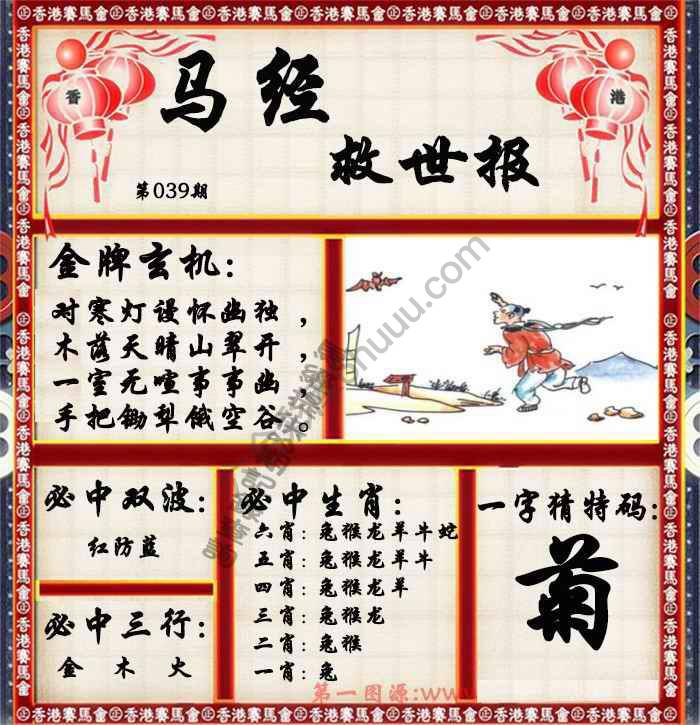 香港賽馬會
香
港
马经
救世报
第039期
金牌玄机：
对寒灯谩怀幽独，
木落天晴山翠开，
一室无喧事事幽，
手把锄犁俄空谷。
必中双波：
红防蓝
必中三行：
金 木 火
必中生肖：
六肖：兔猴龙羊牛蛇
五肖：兔猴龙羊牛
四肖：兔猴龙羊
三肖：兔猴龙
二肖：兔猴
一肖：兔
一字猜特码：
菊
第一图源:www